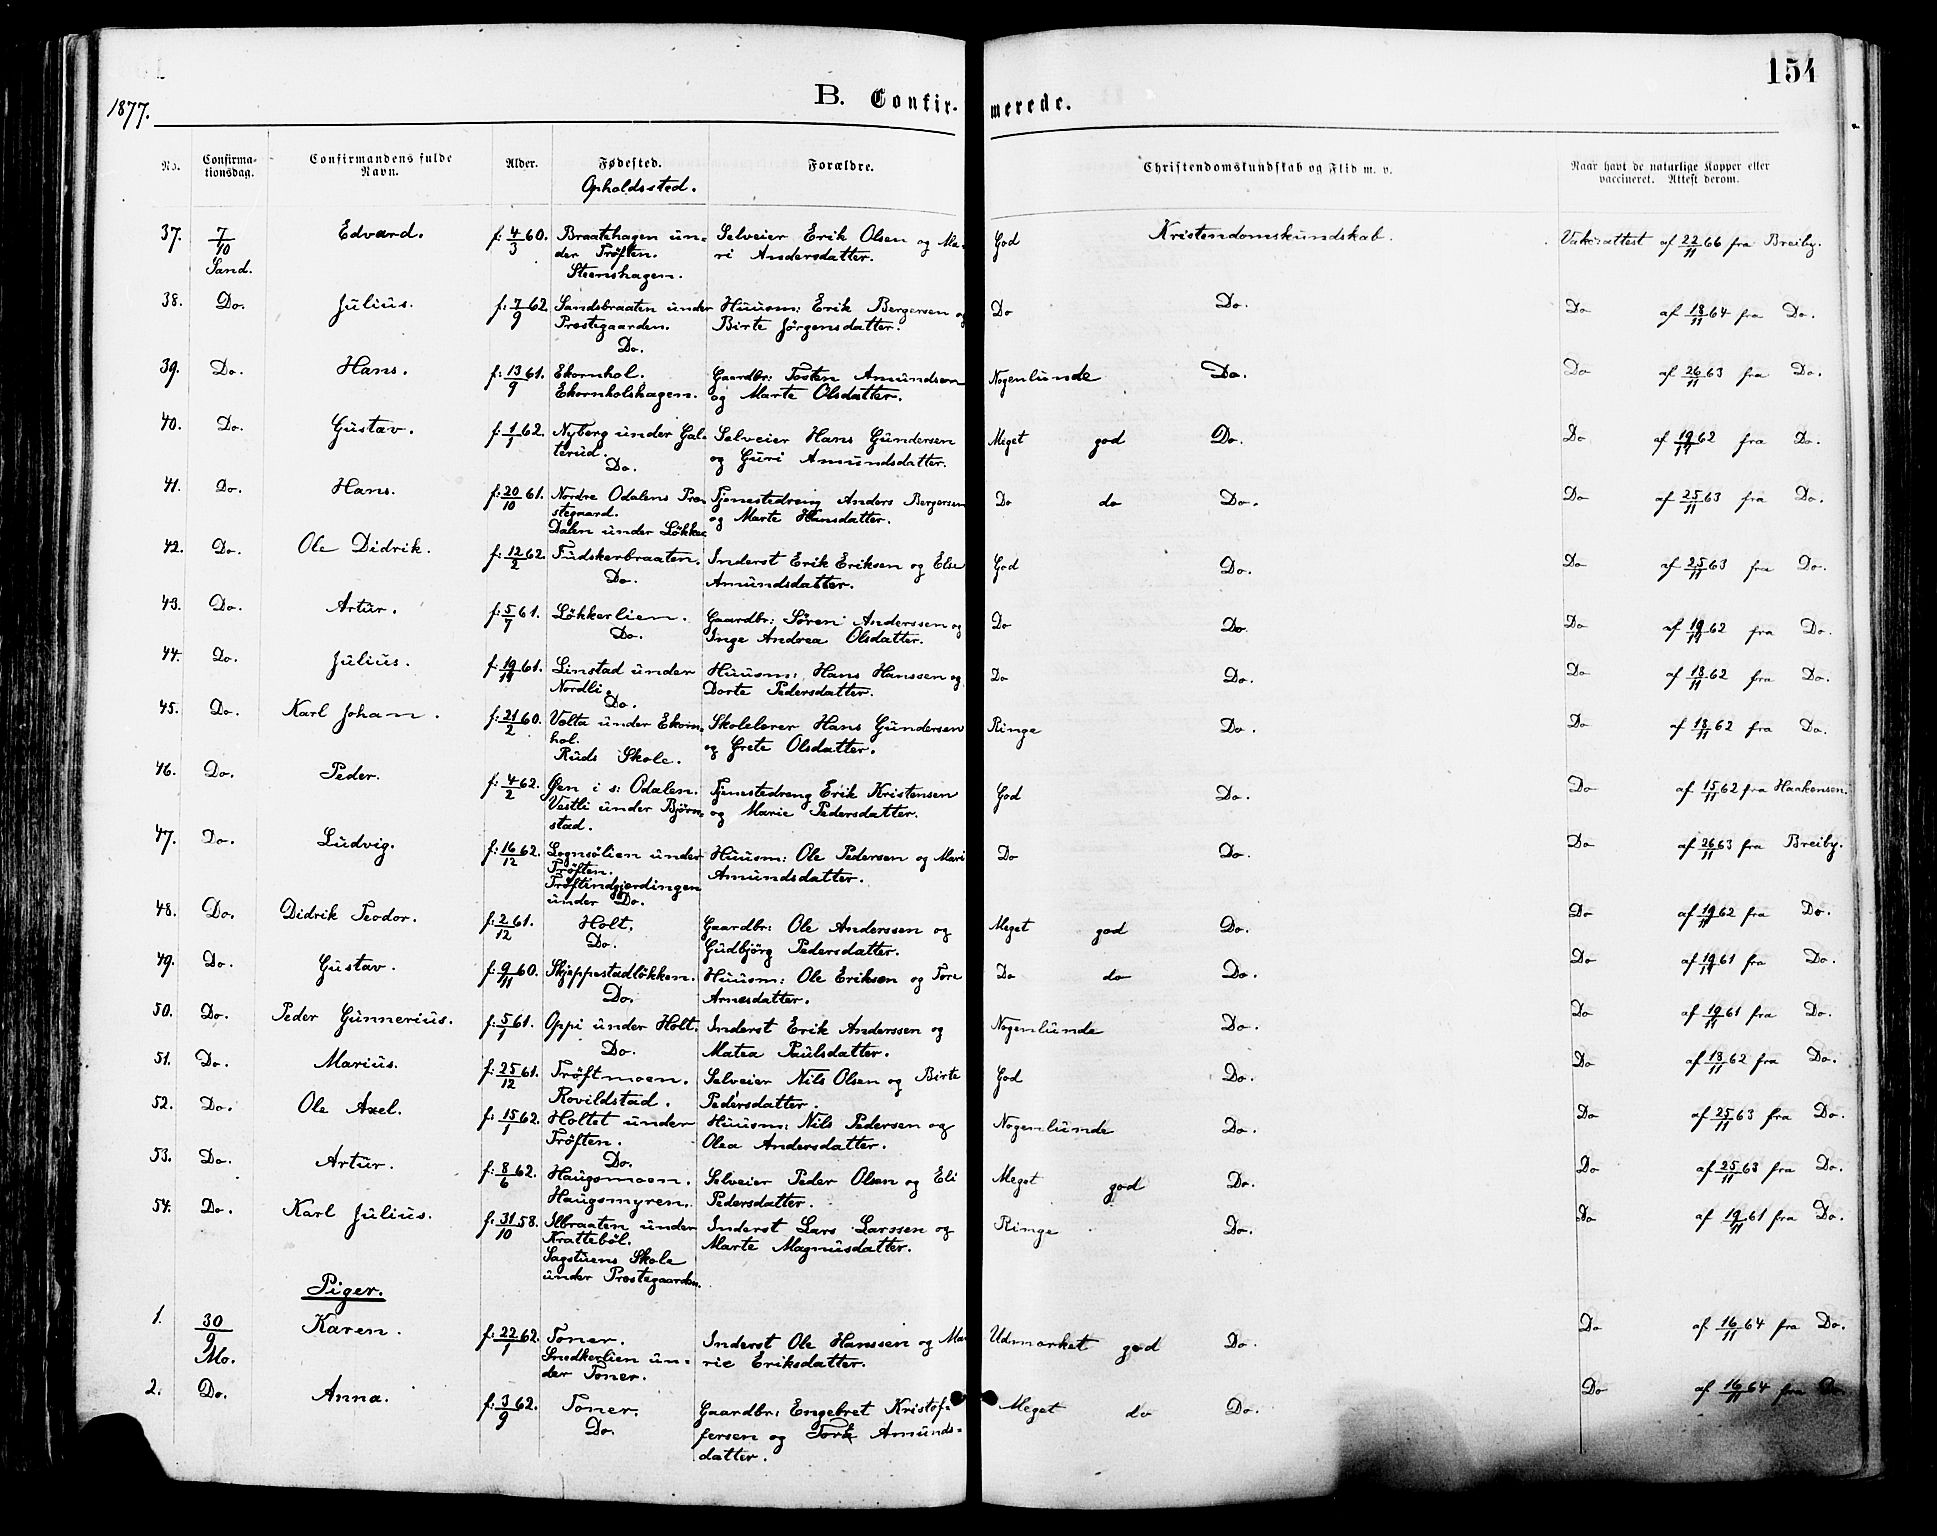 154
1877.
B. Confir-
merede.
No.
Confirma-
tionsdag.
Confirmandens fulde
Navn.
Alder.
Fødested.
Opholdssted.
Forældre.
Christendomskundskab og Flid m. v.
Naar havt de naturlige Kopper eller
vaccineret. Attest derom.
37. 7/10 Edvard. f: 4/3 60. Braatehagen un- Selveier Erik Olsen og Ma- God Kristendomskundskab. Vakcattest af 22/11 66 fra Breiby.
Sand. der Trøften. ri Andersdatter.
Steenshagen.
38. Do. Julius. f: 7/9 62. Sandsbraaten under Huusm: Erik Bergersen og Do Do. Do af 18/11 64 fra Do.
Prestegaarden. Birte Jørgensdatter.
Do.
39. Do. Hans. f: 13/9 61. Ekornhol. Gaardbr: Tosten Amundsen Nogenlunde Do. Do af 26/11 63 fra Do.
Ekornholshagen. og Marte Olsdatter.
40. Do. Gustav. f: 1/1 62. Nyberg under Gal- Selveier Hans Gundersen Meget god Do. Do af 19/11 62 fra Do.
terud. og Guri Amundsdatter.
Do.
41. Do. Hans. f: 20/10 61. Nordre Odalens Pre- Tjenestedreng Anders Bergersen Do do Do. Do af 25/11 63 fra Do.
stegaard. og Marte Hansdatter.
Dalen under Løkker
42. Do. Ole Didrik. f: 12/2 62. Tudskerbraaten. Inderst Erik Eriksen og Else God Do. Do af 25/11 63 fra Do.
Do. Amundsdatter.
43. Do. Artur. f: 5/7 61. Løkkerlien. Gaardbr: Søren Anderssen og Do Do. Do af 19/11 62 fra Do.
Do. Inge Andrea Olsdatter.
44. Do. Julius. f: 19/11 61. Linstad under Huusm: Hans Hanssen og Do Do. Do af 18/11 62 fra Do.
Nordli. Dorte Pedersdatter.
Do.
45. Do. Karl Johan. f: 21/2 60. Volta under Ekorn- Skolelærer Hans Gundersen Ringe Do. Do af 18/11 62 fra Do.
hol. og Grete Olsdatter.
Ruds Skole.
46. Do. Peder. f: 4/2 62. Øen i s: Odalen. Tjenestedreng Erik Kristensen God Do. Do af 15/11 62 fra Haakensen.
Vestli under Bjørn- og Marie Pedersdatter.
stad.
47. Do. Ludvig. f: 16/12 62. Lognsølien under Huusm: Ole Pedersen og Mari Do Do. Do af 26/11 63 fra Breiby.
Trøften. Amundsdatter.
Trøftindgjerdingen
under Do.
48. Do. Didrik Teodor. f: 2/12 61. Holt. Gaardbr: Ole Anderssen og Meget god Do. Do af 19/11 62 fra Do.
Do. Gudbjørg Pedersdatter.
49. Do. Gustav. f: 9/11 60. Skjeppestadløkken. Huusm: Ole Eriksen og Tore Do do Do. Do af 19/11 61 fra Do.
Do. Arnesdatter.
50. Do. Peder Gunnerius. f: 5/1 61. Oppi under Holt. Inderst Erik Anderssen og Nogenlunde Do. Do af 19/11 61 fra Do.
Do. Matea Paulsdatter.
51. Do. Marius. f: 25/12 61. Trøftmoen. Selveier Nils Olsen og Birte God Do. Do af 13/11 62 fra Do.
Rovildstad. Pedersdatter.
52. Do. Ole Axel. f: 15/1 62. Holtet under Huusm: Nils Pedersen og Nogenlunde Do. Do af 25/11 63 fra Do.
Trøften. Olea Andersdatter.
Do.
53. Do. Artur. f: 8/6 62. Haugsmoen. Selveier Peder Olsen og Eli Meget god Do. Do af 25/11 63 fra Do.
Haugsmyren. Pedersdatter.
54. Do. Karl Julius. f: 31/10 58. Ilbraaten under Inderst Lars Larssen og Ringe Do. Do af 19/11 61 fra Do.
Krattebøl. Marte Magnusdatter.
Sagstuens Skole
under Prestegaarden.
Piger.
1. 30/9 Karen. f: 22/1 62. Toner. Inderst Ole Hanssen og Ma- Udmærket god Do. Do af 16/11 64 fra Do.
Mo. Snedkerlien un- rie Eriksdatter.
der Toner.
2. Do. Anna. f: 3/9 62. Toner. Gaardbr: Engebret Kristof- Meget do Do. Do af 16/11 64 fra Do.
Do. fersen og Tork Amunds-
datter.